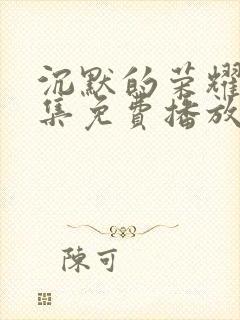 沉默的荣耀
集免費播放
陳可